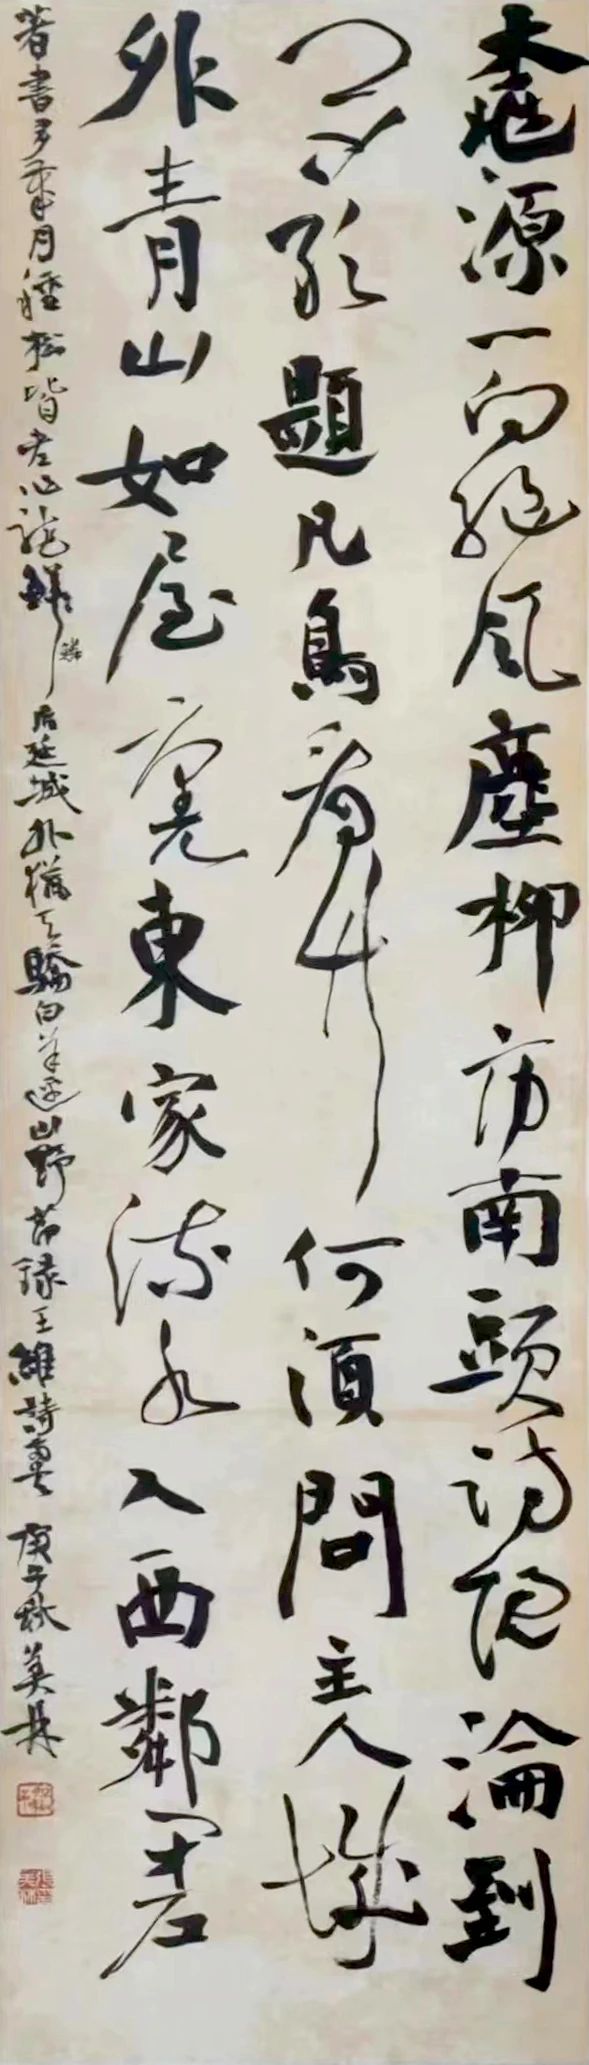 桃源一向絕風塵柳市南頭訪隱淪到
門不敢題凡鳥看竹何須問主人城
外青山如屋裏東家流水入西鄰閉户
著書多年月種松皆老作龍鱗居延城外獵天驕白草連山野節録王維詩庚子秋美林